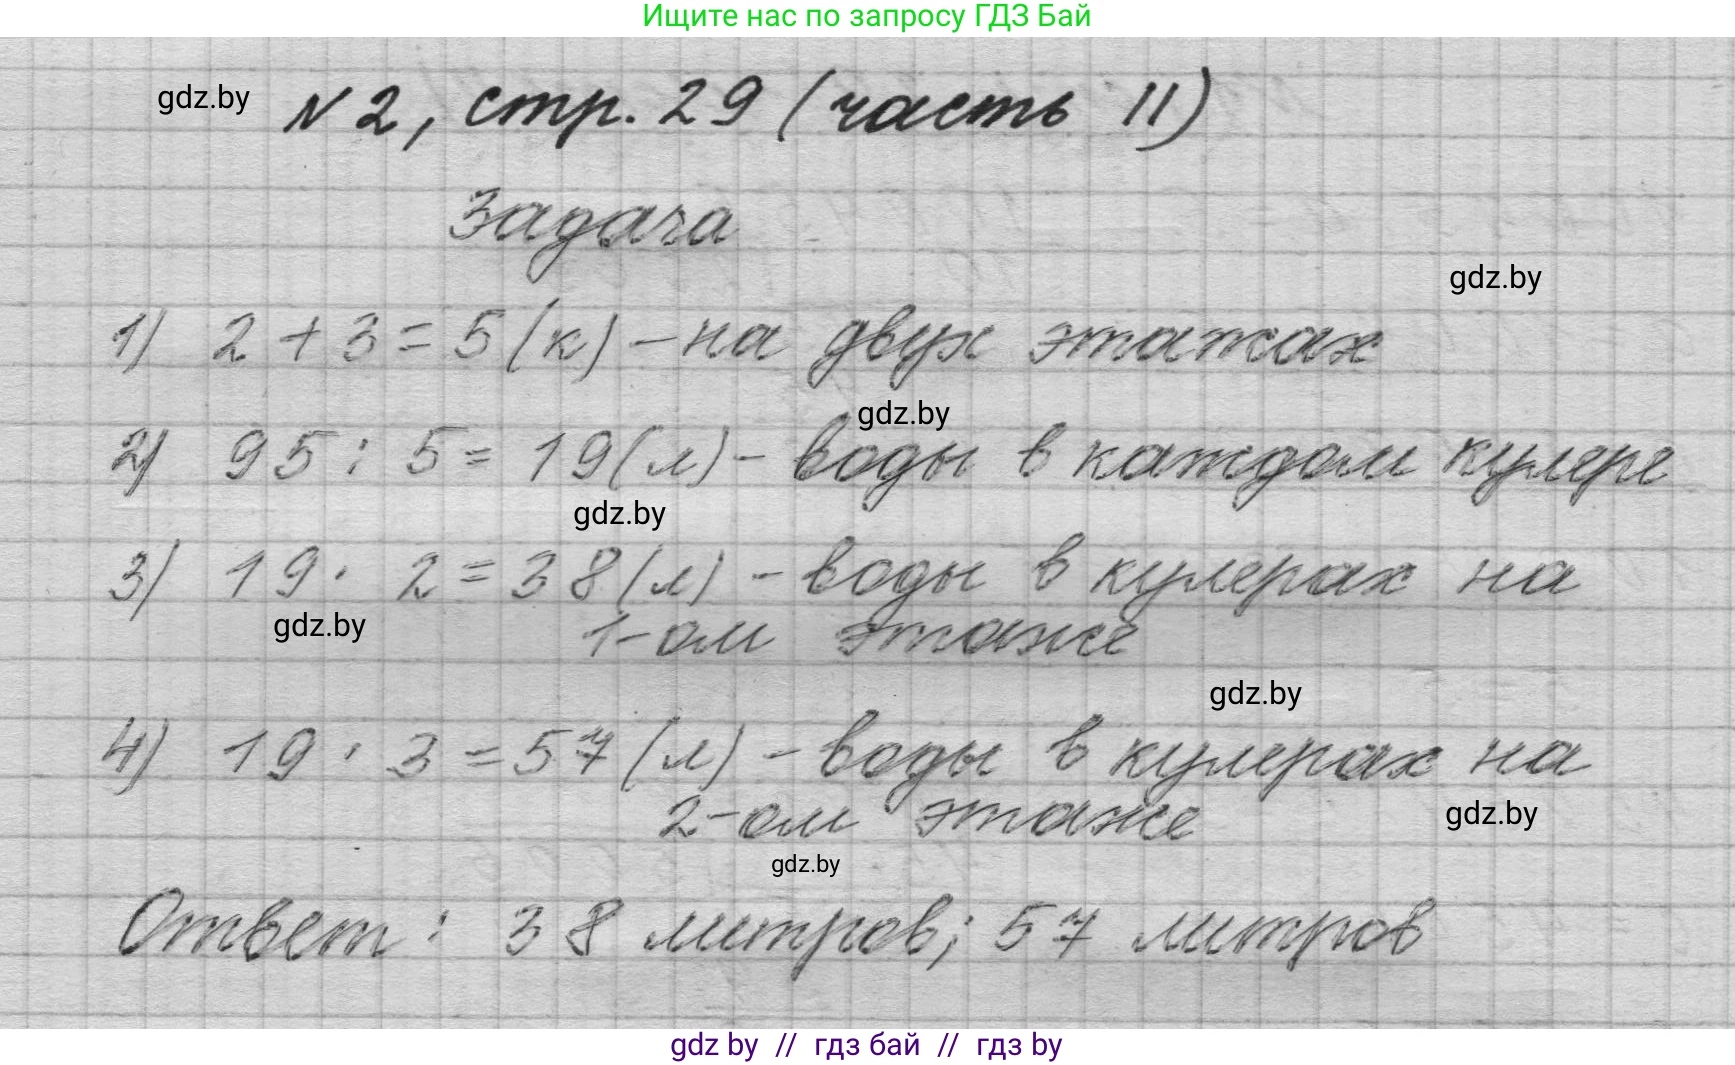 Ищите нас по запросу ГДЗ Бай
gdz.by
N 2, стр. 29 (часть II)
Задача
gdz.by
1) 2 + 3 = 5 (к) – на двух этажах
gdz.by
2) 95 : 5 = 19 (л) – воды в каждом кулере
gdz.by
3) 19 · 2 = 38 (л) – воды в кулерах на
gdz.by
1-ом этаже
gdz.by
4) 19 · 3 = 57 (л) – воды в кулерах на
2-ом этаже
gdz.by
gdz.by
Ответ: 38 литров; 57 литров
gdz by // гдз бай // гдз by